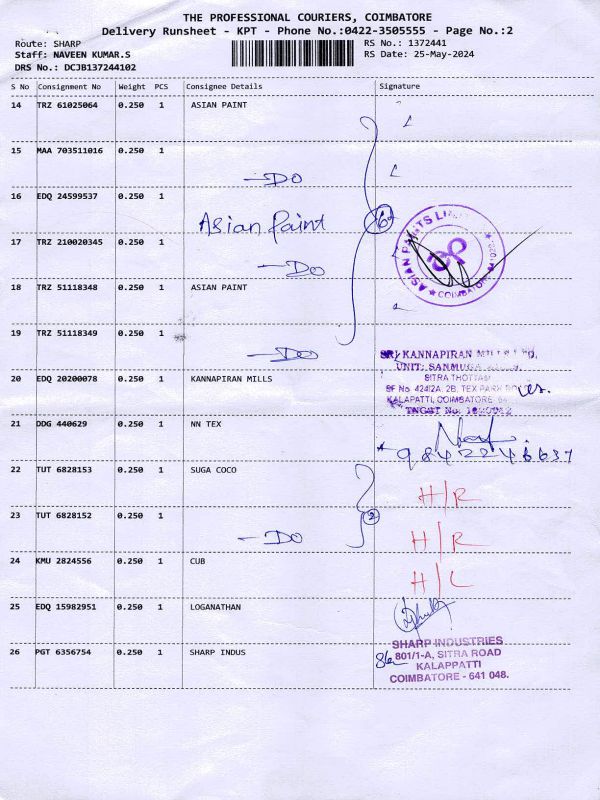 THE PROFESSIONAL COURIERS, COIMBATORE
Delivery Runsheet - KPT - Phone No.:0422-3505555 - Page No.:2
Route: SHARP
Staff: NAVEEN KUMAR.S
DRS No.: DCJB137244102
RS No.: 1372441
RS Date: 25-May-2024
S No Consignment No Weight PCS Consignee Details Signature
14 TRZ 61025064 0.250 1 ASIAN PAINT
15 MAA 703511016 0.250 1
DO
16 EDQ 24599537 0.250 1
Asian Paint
6
ASIAN PAINTS
COIMBATORE
17 TRZ 210020345 0.250 1
DO
18 TRZ 51118348 0.250 1 ASIAN PAINT
19 TRZ 51118349 0.250 1
DO
SRI KANNAPIRAN MILLS
UNIT: SANMUGA
SITRA THOTTAM
SF No. 424/2A, 2B, TEX PARK
KALAPATTI, COIMBATORE
TNGST No:
20 EDQ 20200078 0.250 1 KANNAPIRAN MILLS
21 DDG 440629 0.250 1 NN TEX
9842246637
22 TUT 6828153 0.250 1 SUGA COCO
H/R
2
23 TUT 6828152 0.250 1
DO
H/R
24 KMU 2824556 0.250 1 CUB
H/L
25 EDQ 15982951 0.250 1 LOGANATHAN
26 PGT 6356754 0.250 1 SHARP INDUS
SHARP INDUSTRIES
801/1-A, SITRA ROAD
KALAPPATTI
COIMBATORE - 641 048.